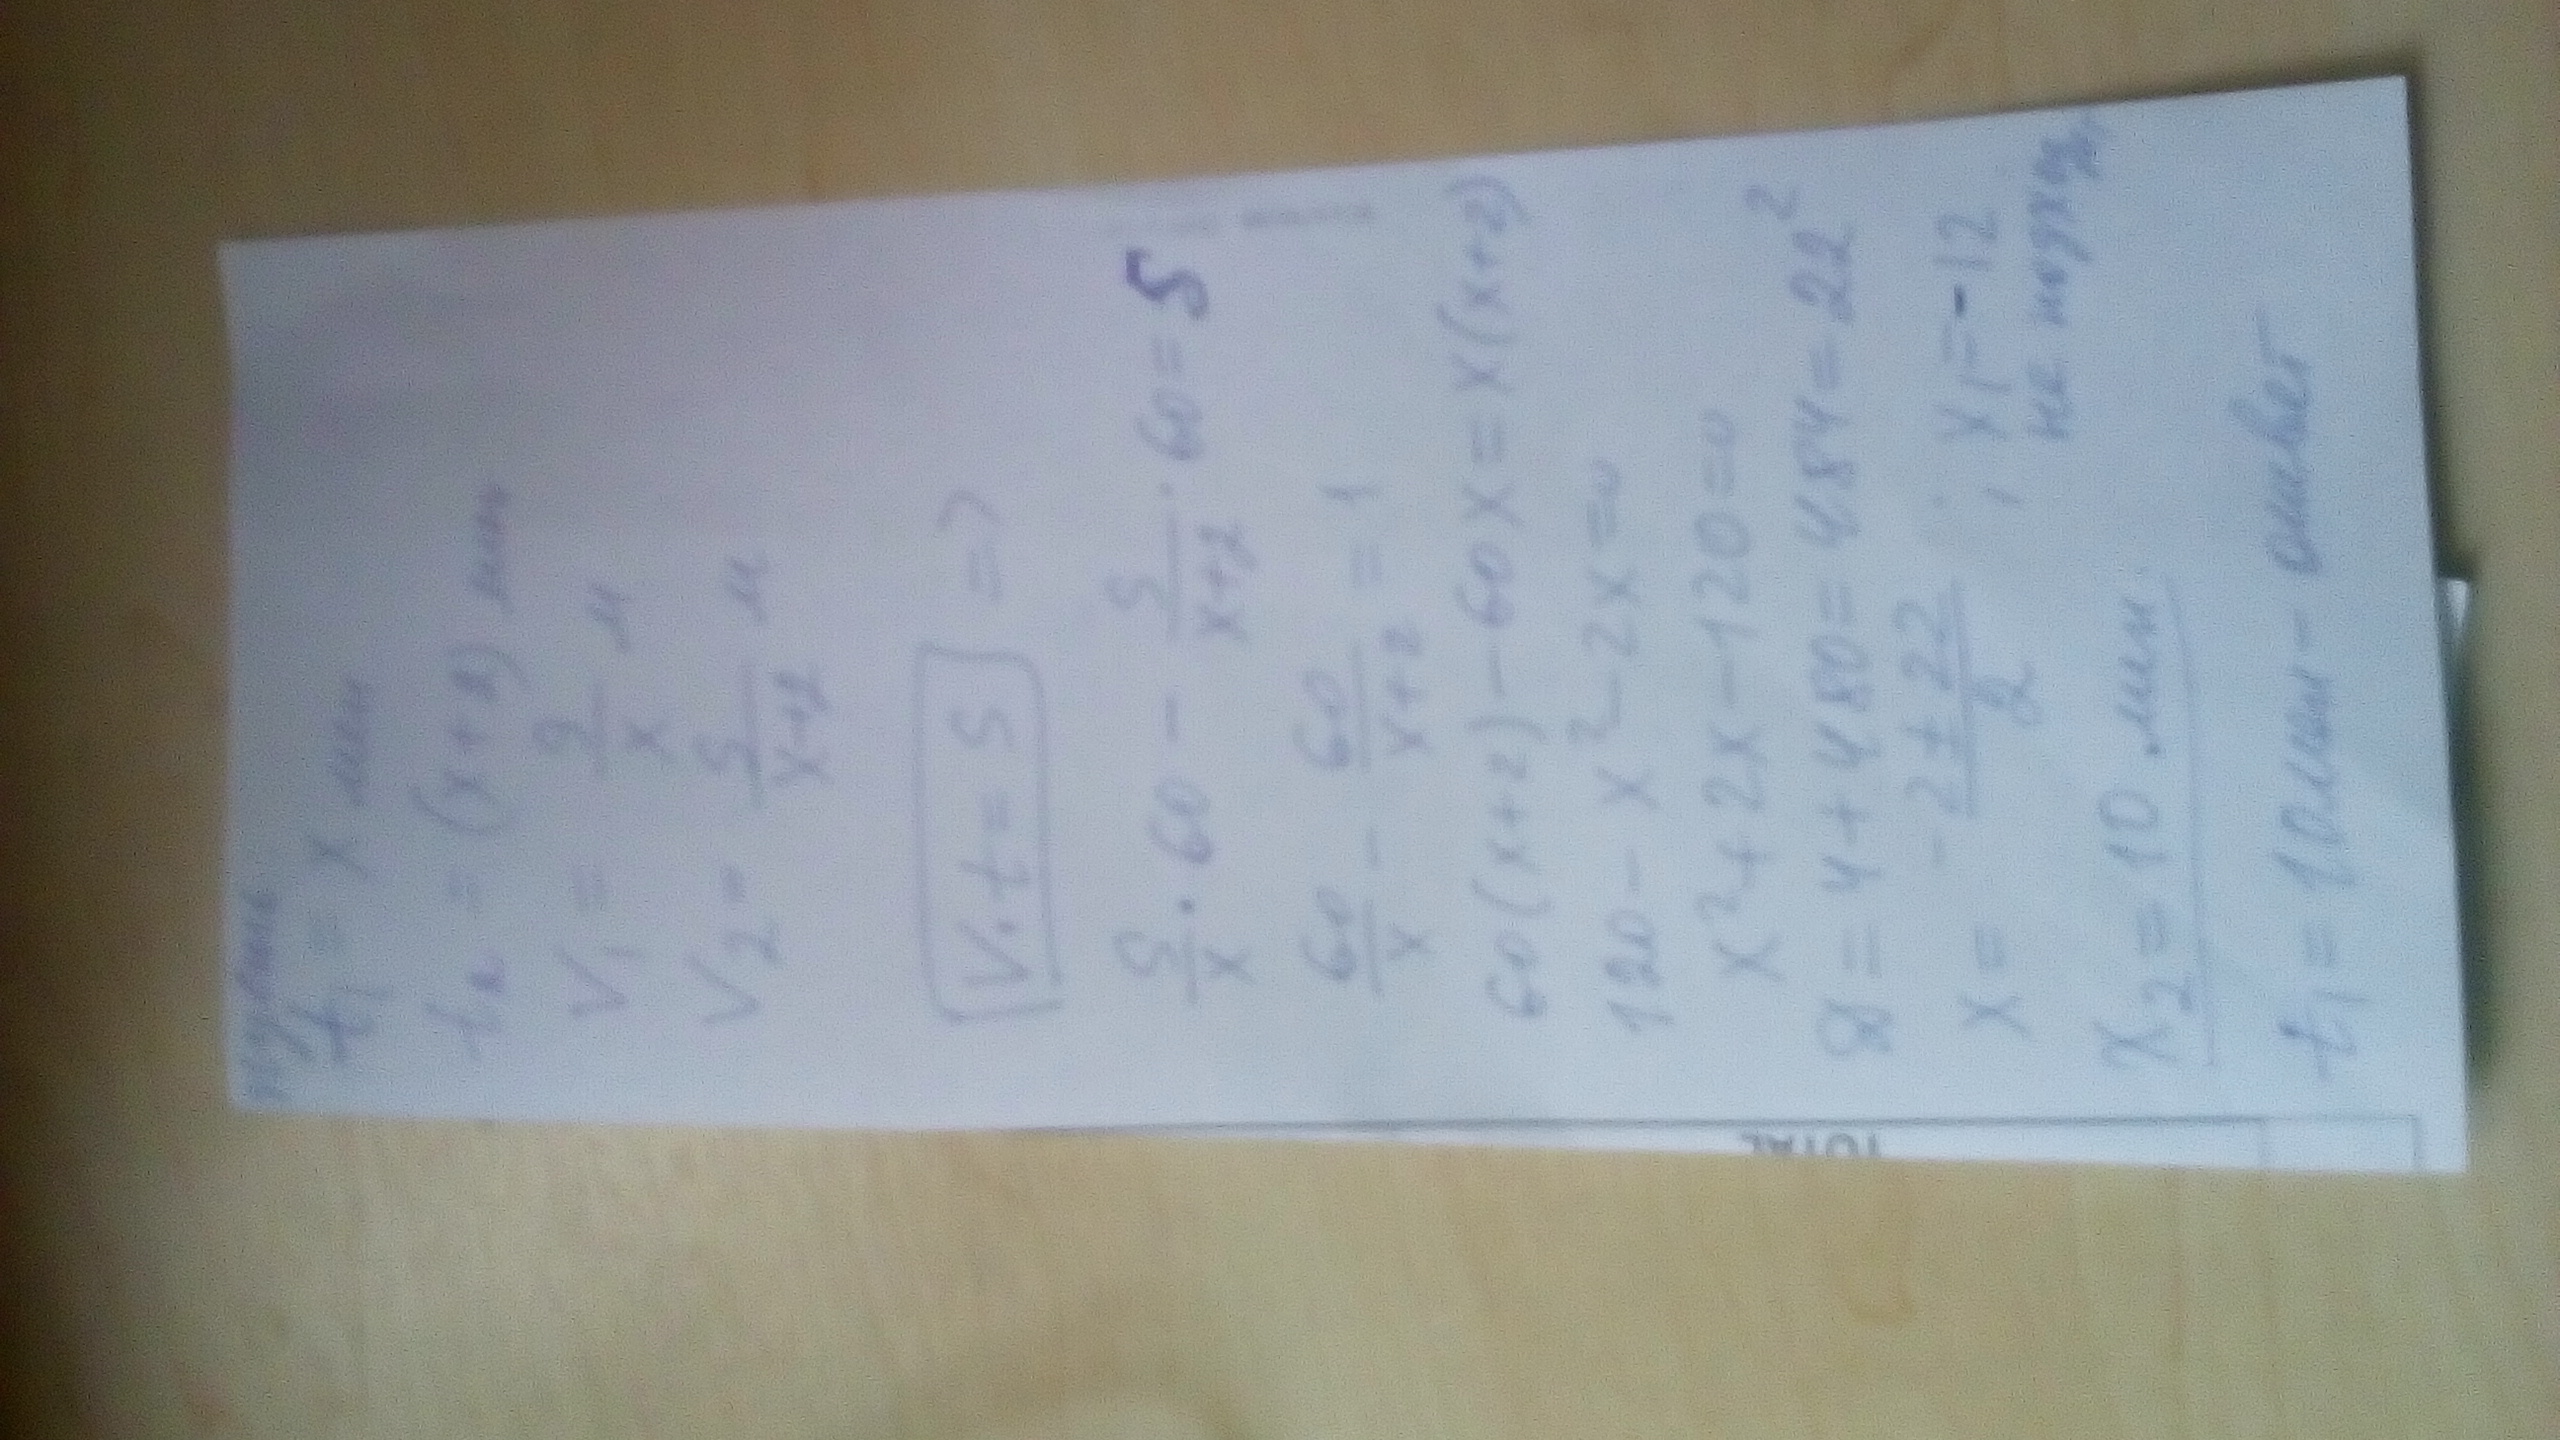 пусть
t₁ = x мин
t₂ = (x+2) мин
V₁ = S/x м
V₂ = S/(x+2) м
V·t = S =>
S/x · 60 − S/(x+2) · 60 = S
60/x − 60/(x+2) = 1
60(x+2) − 60x = x(x+2)
120 − x² − 2x = 0
x² + 2x − 120 = 0
D = 4 + 480 = 484 = 22²
x = (−2 ± 22)/2 , x₁ = −12
не подход.
x₂ = 10 мин.
t₁ = 10 мин − ответ
TOTAL